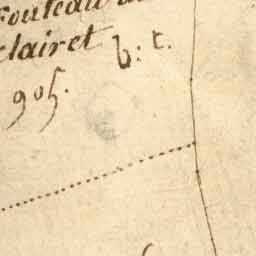 Fouteau
clairet b. t.
905.